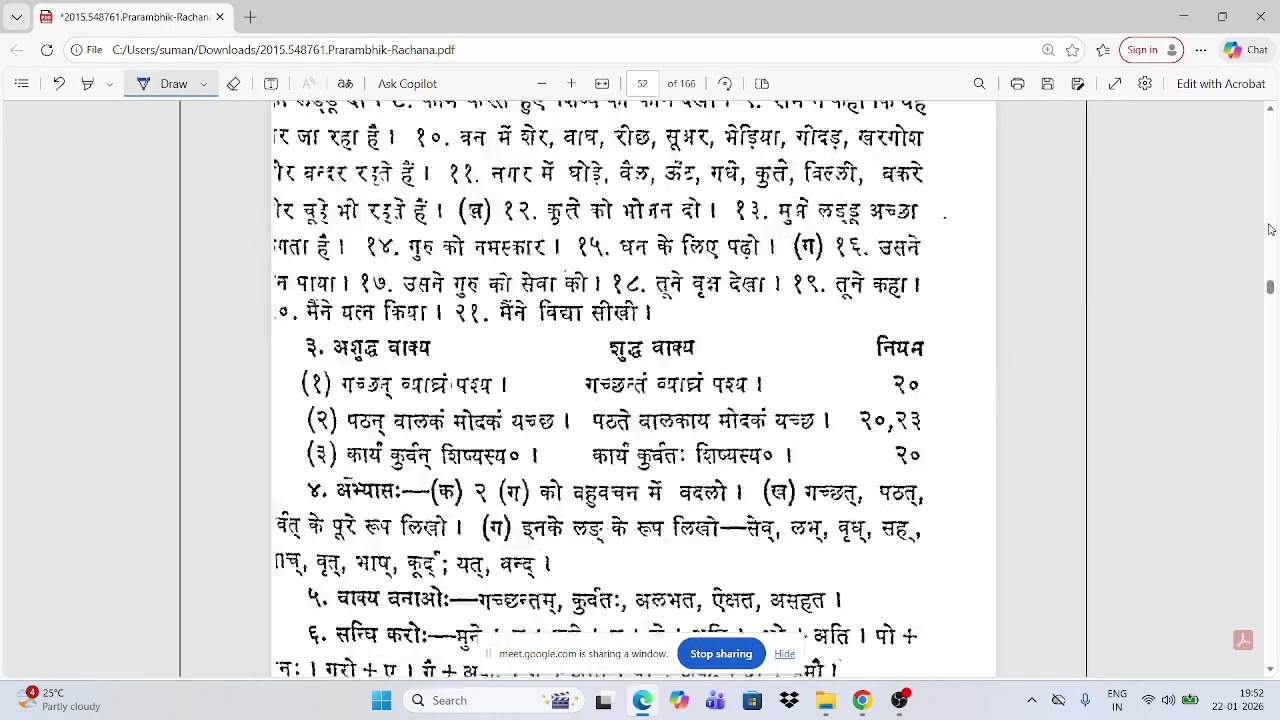 *2015.548761.Prarambhik-Rachana
File C:/Users/suman/Downloads/2015.548761.Prarambhik-Rachana.pdf
Sign in
Chat
Draw
Ask Copilot
52 of 166
Edit with Acrobat
र जा रहा है। १०. वन में शेर, बाघ, रीछ, सूअर, भेड़िया, गीदड़, खरगोश
ीर बन्दर रहते हैं। ११. नगर में घोड़े, बैल, ऊँट, गधे, कुत्ते, बिल्ली, बकरे
ीर चूहे भी रहते हैं। (ख) १२. कुत्ते को भोजन दो। १३. मुझे लड्डू अच्छा
गता है। १४. गुरु को नमस्कार। १५. धन के लिए पढ़ो। (ग) १६. उसने
न पाया। १७. उसने गुरु की सेवा की। १८. तूने वृक्ष देखा। १९. तूने कहा।
०. मैंने यत्न किया। २१. मैंने विद्या सीखी।
३. अशुद्ध वाक्य शुद्ध वाक्य नियम
(१) गच्छन् व्याघ्रं पश्य। गच्छन्तं व्याघ्रं पश्य। २०
(२) पठन् बालकं मोदकं यच्छ। पठते बालकाय मोदकं यच्छ। २०,२३
(३) कार्यं कुर्वन् शिष्यस्य०। कार्यं कुर्वतः शिष्यस्य०। २०
४. अभ्यासः—(क) २ (ग) को बहुवचन में बदलो। (ख) गच्छत्, पठत्,
र्वत् के पूरे रूप लिखो। (ग) इनके लङ् के रूप लिखो—सेव्, लभ्, वृध्, सह्,
ाच्, वृत्, भाष्, कूर्द्; यत्, वन्द्।
५. वाक्य बनाओः—गच्छन्तम्, कुर्वतः, अलभत, ऐक्षत, असहत।
६. सन्धि करोः—मुने अति। पो +
meet.google.com is sharing a window.
Stop sharing
Hide
25°C
Partly cloudy
4
Search
ENG
IN
19:52
22-01-2026